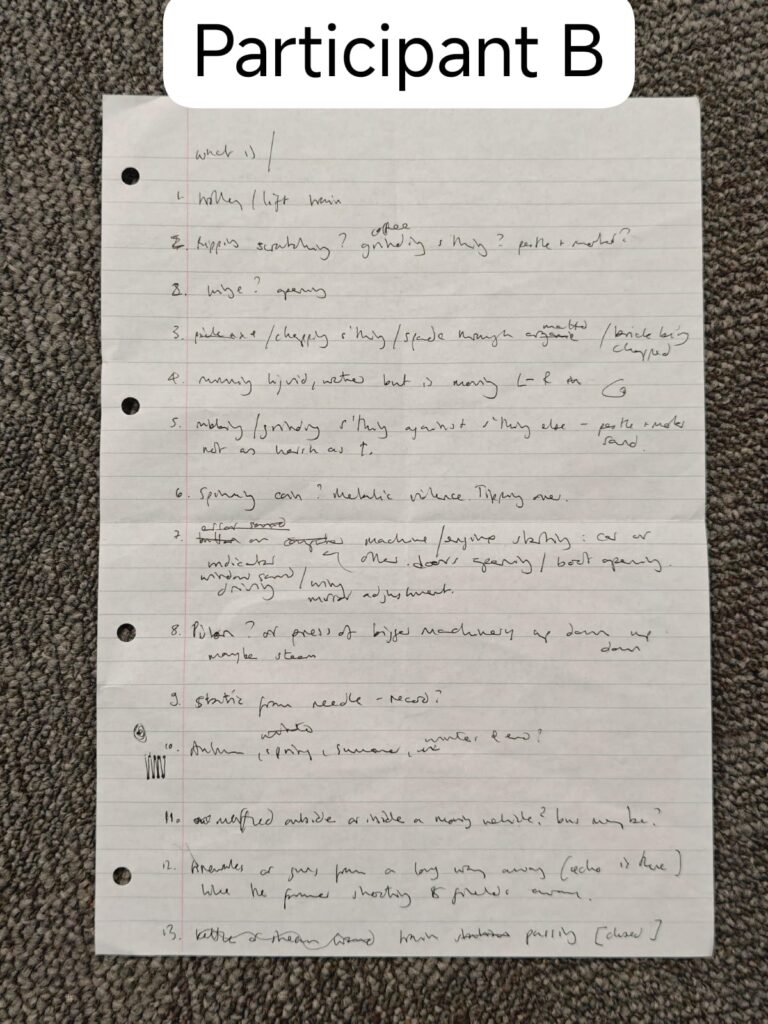 Participant B
what is /
1. trolley / lift train
2. scratching? coffee grinding s'thing? pestle + mortar?
3. hinge? opening
3. pick axe / chopping s'thing / spade through organic matter / brick being chopped
4. running liquid, water but is moving L - R in
5. rubbing / grinding s'thing against s'thing else - pestle + mortar
not as harsh as ↑. sand.
6. Spinning coin? Metallic violence. Tipping over.
error sound
7. button on computer machine / engine starting: car or
indicator other. doors opening / boot opening.
window sound / wing
driving mirror adjustment.
8. Piston? or press of bigger machinery up down up
maybe steam down
9. static from needle - record?
10. Autumn, spring, summer, winter & end?
11. muffled outside or inside a moving vehicle? bus maybe?
12. or guns from a long way away (echo is there)
like the farmer shooting 8 fields away.
13. kettle or steam train passing [closed]